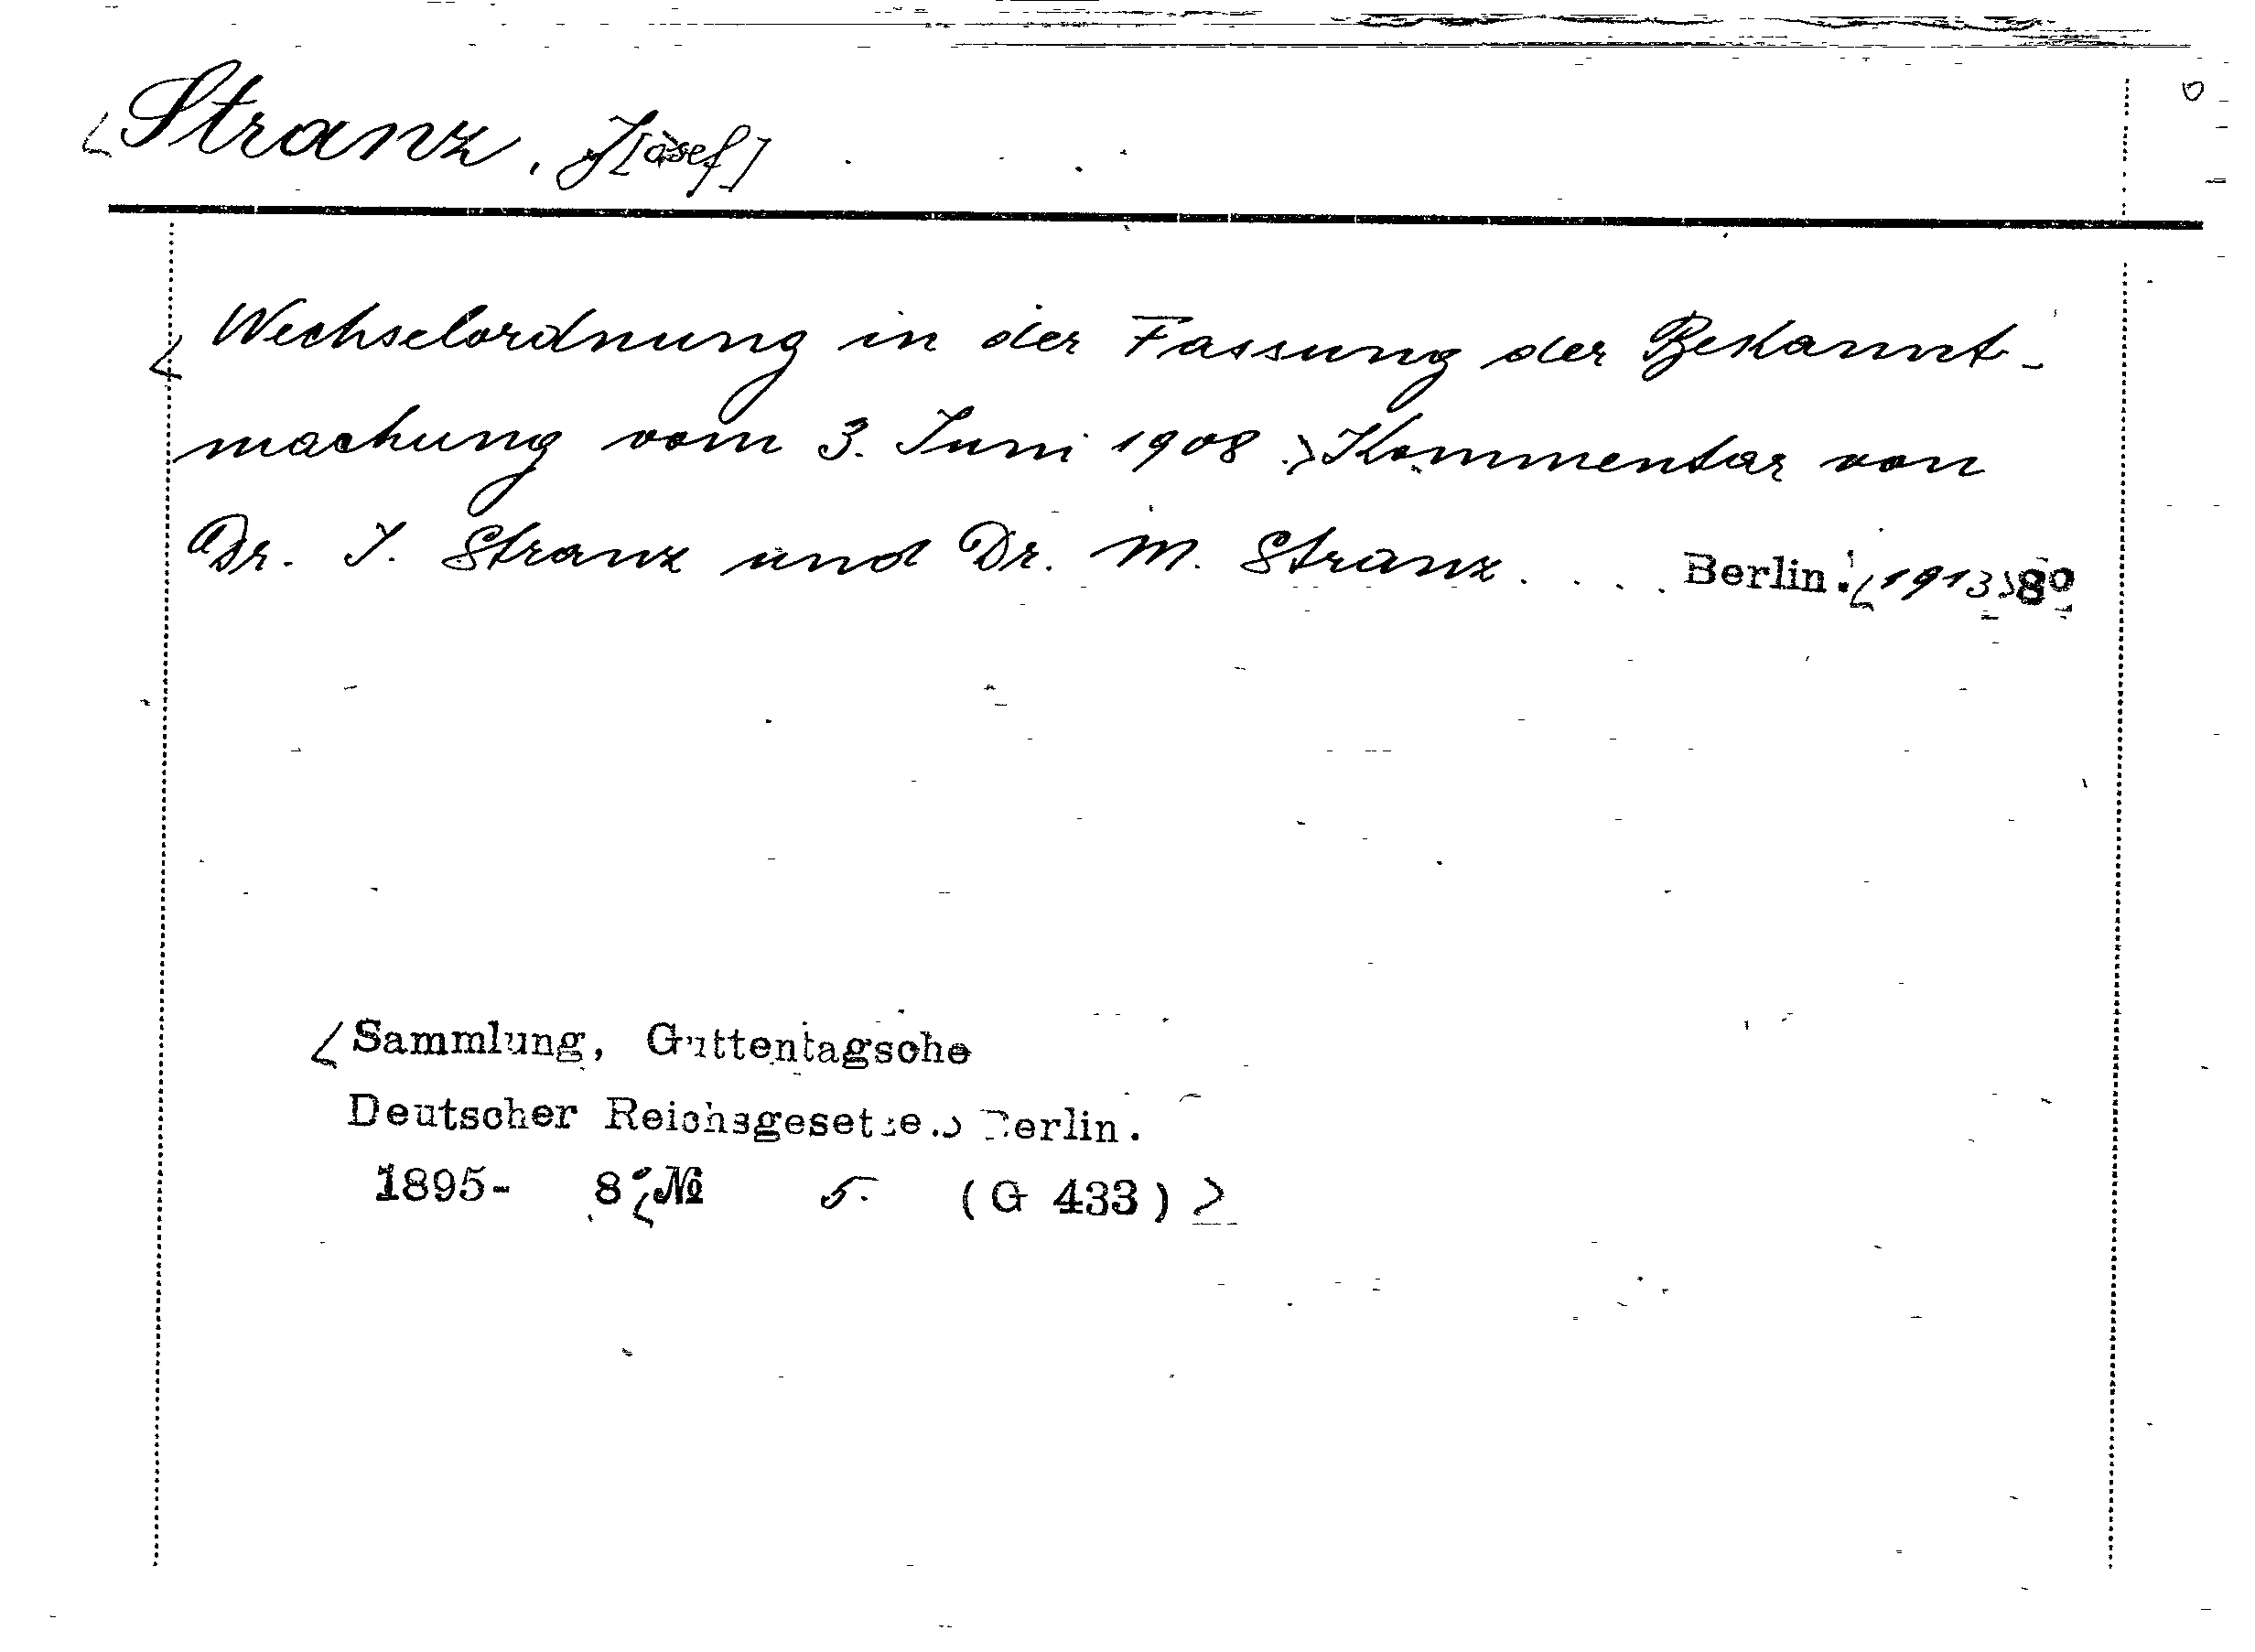 Stranz, J[osef]
Wechselordnung in der Fassung der Bekannt-
machung vom 3. Juni 1908. Kommentar von
Dr. J. Stranz und Dr. M. Stranz.... Berlin. 1913 8º
Sammlung, Guttentagsche
Deutscher Reichsgesetze. Berlin.
1895- 8º № 5. (G 433)